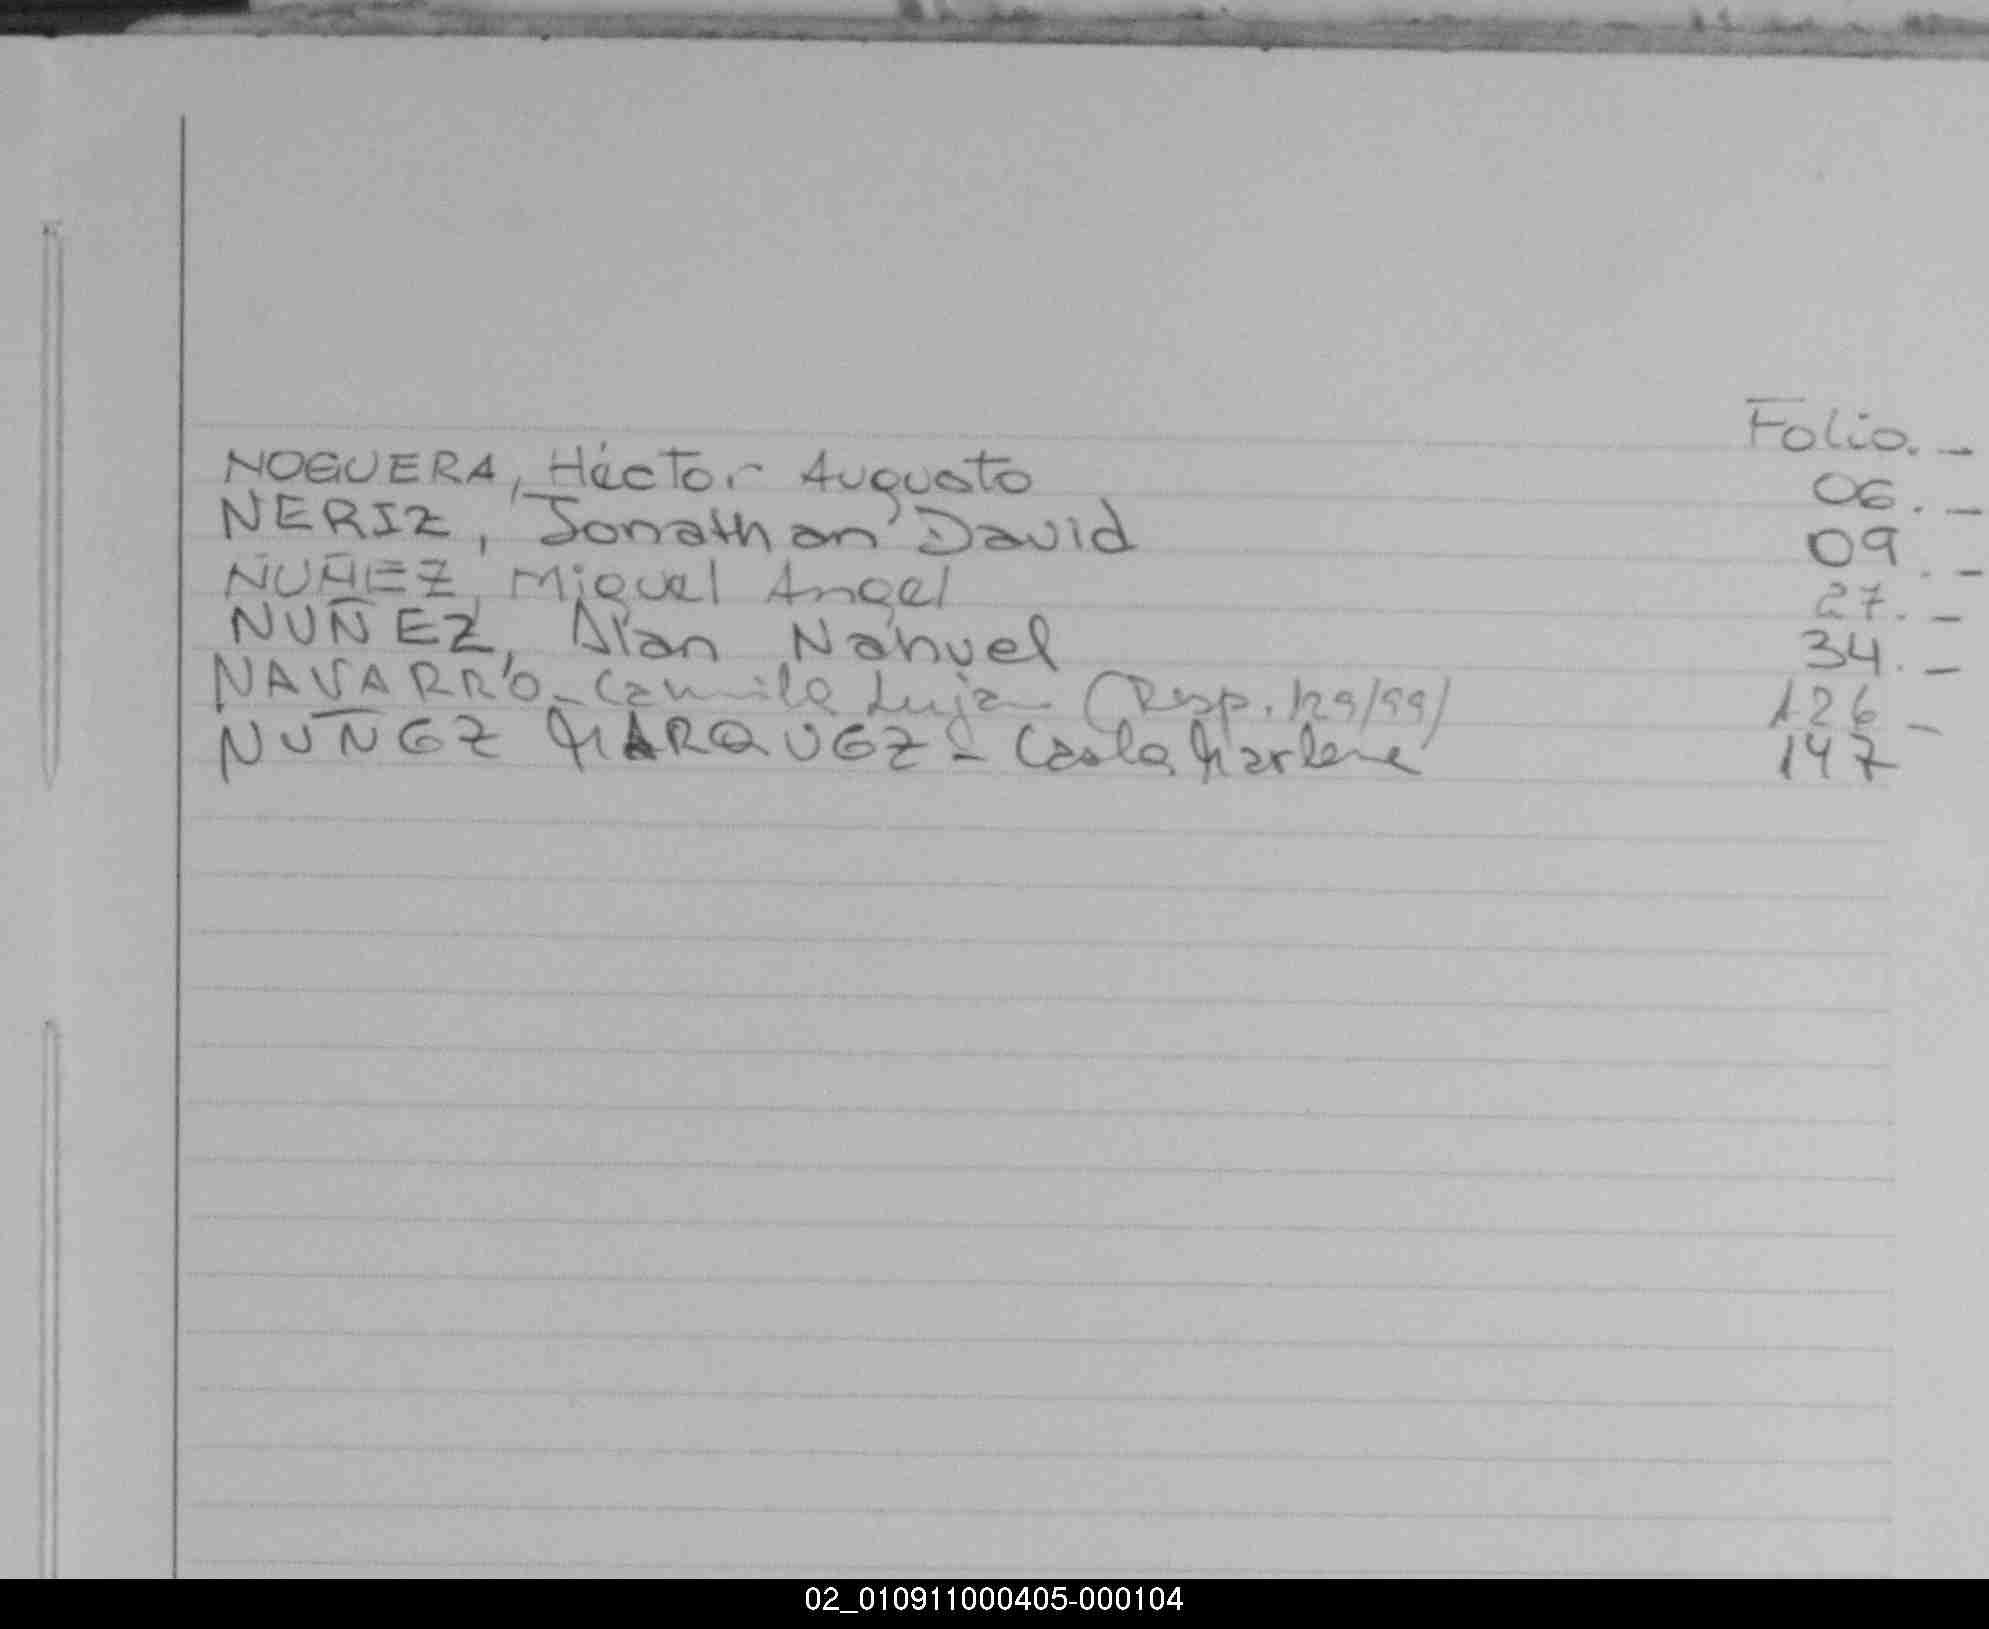 Folio.-
NOGUERA, Héctor Augusto 06.-
NERIZ, Jonathan David 09.-
NUÑEZ, Miguel Angel 27.-
NUÑEZ, Alan Nahuel 34.-
NAVARRO - Camila Lujan (Resp. 129/99) 126 -
NUÑEZ MARQUEZ - Carla Marlene 147
02_010911000405-000104